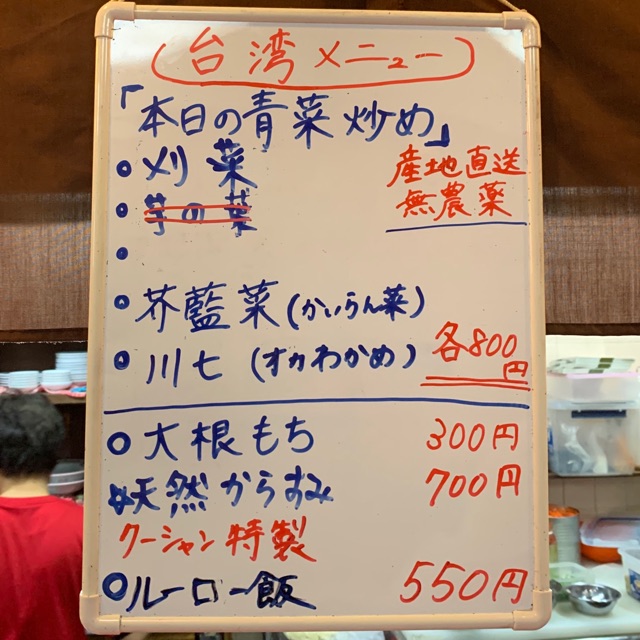 台湾メニュー
「本日の青菜炒め」
・刈菜
産地直送
・芋の葉
無農薬
・
・芥藍菜(かいらん菜)
・川七(オカわかめ)
各800円
○大根もち 300円
天然からすみ 700円
クーシャン特製
○ルーロー飯 550円